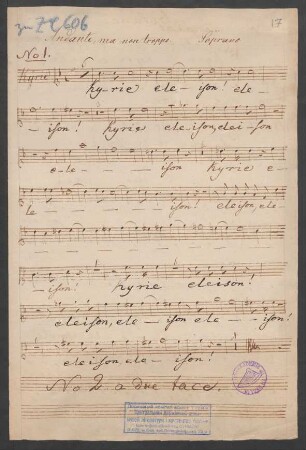 zu Z 4,606
17
Andante, ma non troppo Soprano
No 1.
Kyrie
ky-rie ele-ison ele-
-ison! kyrie eleison, elei-son
e-le-ison kyrie e-
le-ison! eleison, ele
-ison! kyrie eleison!
eleison, ele-ison ele-ison!
eleison ele-ison!
No 2 a due tace.